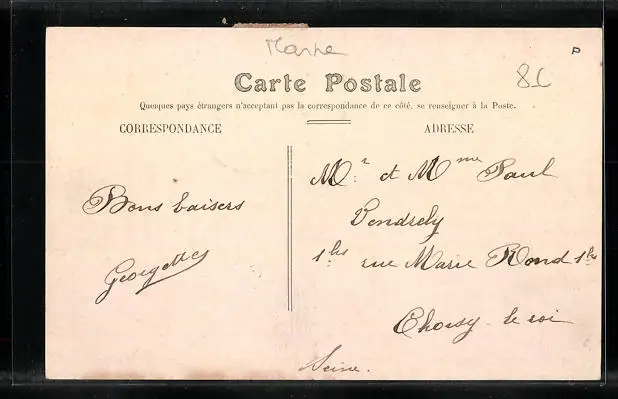 Marne
8C
P
Carte Postale
Quelques pays étrangers n'acceptant pas la correspondance de ce côté, se renseigner à la Poste.
CORRESPONDANCE
ADRESSE
Bons baisers
Georgette
Mr et Mme Paul
Vendrely
1bis rue Marie Rond 1bis
Choisy-le roi
Seine.